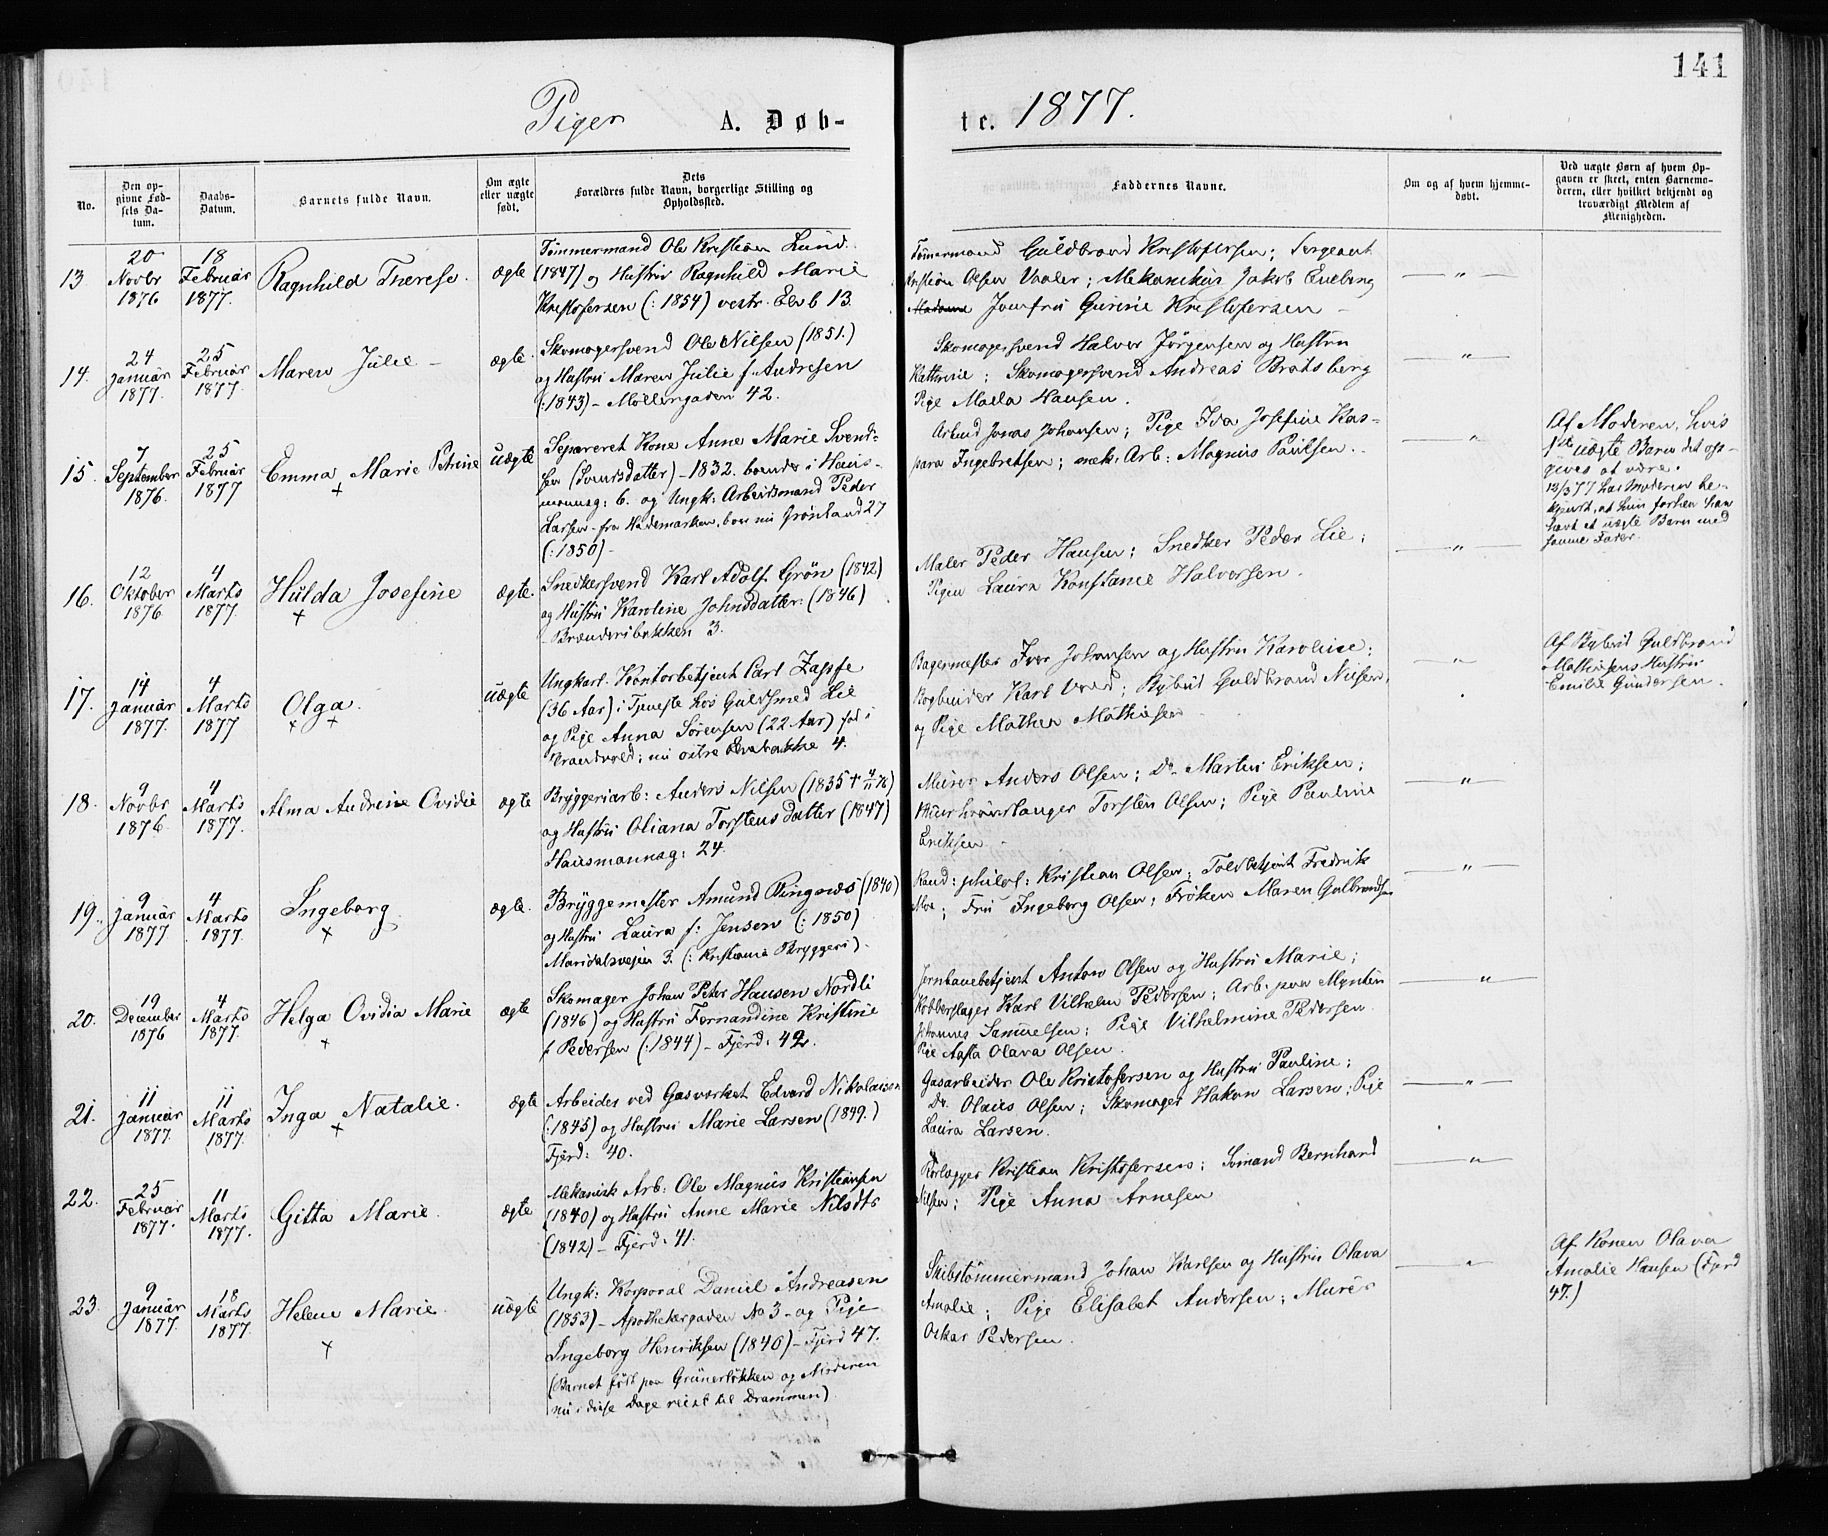 141
Piger A. Døb-
te. 1877.
No.
Den op-
givne Fød-
sels Da-
tum.
Daabs-
Datum.
Barnets fulde Navn.
Om ægte
eller uægte
født.
Dets
Forældres fulde Navn, borgerlige Stilling og
Opholdssted.
Faddernes Navne.
Om og af hvem hjemme-
døbt.
Ved uægte Børn af hvem Op-
gaven er skeet, enten Barnemo-
deren, eller hvilket bekjendt og
troværdigt Medlem af
Menigheden.
13.
20
Novbr
1876
18
Februar
1877.
Ragnhild Therese.
ægte
Tömmermand Ole Kristian Lund
(1847) og Hustru Ragnhild Marie
Kristofersen (: 1854) vestr. Elvb 13.
Tømermand Guldbrand Kristofersen; Sergeant
Kristian Olsen Vaaler; Mekanikus Jakob Eneberg
Jomfru Gurine Kristofersen –
— " —
14.
24
Januar
1877.
25
Februar
1877.
Maren Julie –
ægte.
Skomagersvend Ole Nilsen (1851.)
og Hustru Maren Julie f Andresen
(:1843) – Möllergaden 42.
Skomagersvend Halvor Jörgensen og Hustru
Kathrine; Skomagersvend Andreas Brotsberg
Pige Maela Hansen.
— " —
15.
7
September
1876.
25
Februar
1877
Emma Marie Petrine
+
uægte
Separeret Kone Anne Marie Svend-
sen (Svensdatter) – 1832. boende i Haus-
mannsg: 6. og Ungk: Arbeidsmand Peder
Larsen fra Hedemarken, boer nu Grönland 27
(:1850) –
Arbmd Jonas Johansen; Pige Ida Josefine Kas-
para Ingebretsen; mek: Arb: Magnus Paulsen.
— " —
Af Moderen, hvis
1ste uægte Barn det op-
gives at være.
13/3 77 har Moderen be-
kjendt, at hun forhen har
havt et uægte Barn med
samme Fader.
16.
12
Oktober
1876
4
Marts
1877.
Hulda Josefine
+
ægte.
Snedkersvend Karl Adolf Grön (1842)
og Hustru Karoline Johnsdatter (1846)
– Brænderibakken 3.
Maler Peder Hansen; Snedker Peder Lie;
Pigen Laura Konstance Halversen.
— " —
17.
14
Januar
1877.
4
Marts
1877
Olga.
+ +
uægte
Ungkarl. Kontorbetjent Carl Zapfe
(36 Aar) i Tjeneste hos Guldsmed Lie
og Pige Anna Sörensen (22 Aar) fød i
Trandvold; nu östre Elvebakke 4.
Bagermester Iver Johansen og Hustru Karoline;
Bogbinder Karl Vold; Bybud Guldbrand Nilsen,
og Pige Mathea Mathiesen
— " —
Af Bybud Guldbrand
Mathisens Hustru
Emilie Gundersen.
18.
9
Novbr
1876.
4
Marts
1877.
Alma Andrine Ovidie
ægte
Bryggeriarb: Anders Nilsen (1835 † 4/11 76)
og Hustru Oliana Torstensdatter (1847)
Hausmannsg: 24.
Murer Anders Olsen; Do. Martin Eriksen;
Murhaandlanger Torsten Olsen; Pige Pauline
Eriksen –
— " —
19.
9
Januar
1877
4
Marts
1877.
Ingeborg.
+
ægte.
Bryggemester Amund Ringnæs (1840)
og Hustru Laura f: Jensen (: 1850)
Maridalsveien 3. (: Kristiania Bryggeri).
Kand: philol: Kristian Olsen; Toldbetjent Fredrik
Moe; Fru Ingeborg Olsen; Fröken Maren Gulbrandsen
— " —
20.
19
December
1876
4
Marts
1877.
Helga Ovidia Marie
+
ægte
Skomager Johan Peter Hansen Nordli
(1846) og Hustru Fernandine Kristine
f Pedersen (:1844) – Fjerd: 42.
Jernbanebetjent Anton Olsen og Hustru Marie;
Kobberslager Karl Vilhelm Pedersen; Arb. paa Mynten
Johannes Samuelsen; Pige Vilhelmine Pedersen.
Pige Aasta Olava Olsen.
— " —
21.
11
Januar
1877.
11
Marts
1877.
Inga Natalie.
+
ægte
Arbeider ved Gasværket Edvard Nikolaisen
(:1845) og Hustru Marie Larsen (1849.)
Fjerd: 40.
Gasarbeider Ole Kristofersen og Hustru Pauline;
Do. Olaus Olsen; Skomager Hakon Larsen; Pige
Laura Larsen.
— " —
22.
25
Februar
1877.
11
Marts
1877.
Gitta Marie.
ægte
Mekanisk Arb: Ole Magnus Kristiansen
(1840) og Hustru Anne Marie Nilsdtr
(1842) – Fjerd: 41.
Rörlægger Kristian Kristofersen; Sömand Bernhard
Nilsen; Pige Anna Arnesen
— " —
23.
9
Januar
1877.
18
Marts
1877.
Helene Marie.
+
uægte
Ungk: Korporal Daniel Andreasen
(1853) – Apothekergaden No 3 – og Pige
Ingeborg Henriksen (1846) – Fjerd 47.
(Barnet födt paa Grünerlökken og Moderen
nu i disse Dage reist til Drammen).
Skibstömmermand Johan Karlsen og Hustru Olava
Amalie; Pige Elisabet Andersen; Murer
Oskar Pedersen.
— " —
Af Konen Olava
Amalie Hansen (Fjerd
47.)